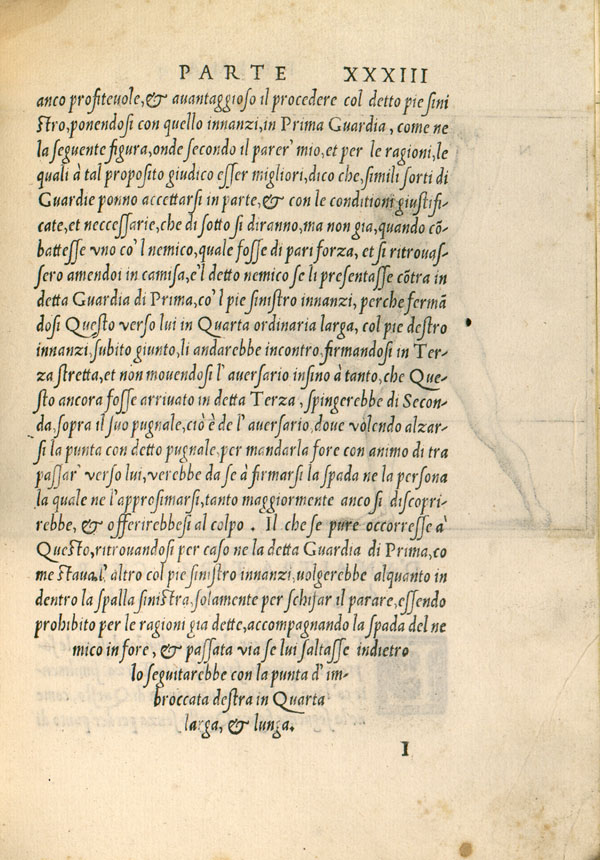 PARTE XXXIII
anco profiteuole, & auantaggioso il procedere col detto pie sini
stro, ponendosi con quello innanzi, in Prima Guardia, come ne
la seguente figura, onde secondo il parer' mio, et per le ragioni, le
quali à tal proposito giudico esser migliori, dico che, simili sorti di
Guardie ponno accettarsi in parte, & con le conditioni giustifi-
cate, et neccessarie, che di sotto si diranno, ma non gia, quando cõ-
battesse vno co' l nemico, quale fosse di pari forza, et si ritrouas-
sero amendoi in camisa, e'l detto nemico se li presentasse cõtra in
detta Guardia di Prima, co'l pie sinistro innanzi, perche fermã
dosi Questo verso lui in Quarta ordinaria larga, col pie destro
innanzi, subito giunto, li andarebbe incontro, firmandosi in Ter-
za stretta, et non movendosi l' auersario insino à tanto, che Que-
sto ancora fosse arriuato in detta Terza, spingerebbe di Secon-
da, sopra il suo pugnale, ciò è de l' auersario, doue volendo alzar-
si la punta con detto pugnale, per mandarla fore con animo di tra
passar' verso lui, verebbe da se à firmarsi la spada ne la persona
la quale ne l'approsimarsi, tanto maggiormente anco si discopri-
rebbe, & offerirebbesi al colpo. Il che se pure occorresse à
Questo, ritrouandosi per caso ne la detta Guardia di Prima, co
me staua l' altro col pie sinistro innanzi, uolgerebbe alquanto in
dentro la spalla sinistra, solamente per schifar il parare, essendo
prohibito per le ragioni gia dette, accompagnando la spada del ne
mico in fore, & passata via se lui saltasse indietro
lo seguitarebbe con la punta d' im-
broccata destra in Quarta
larga, & lunga.
I